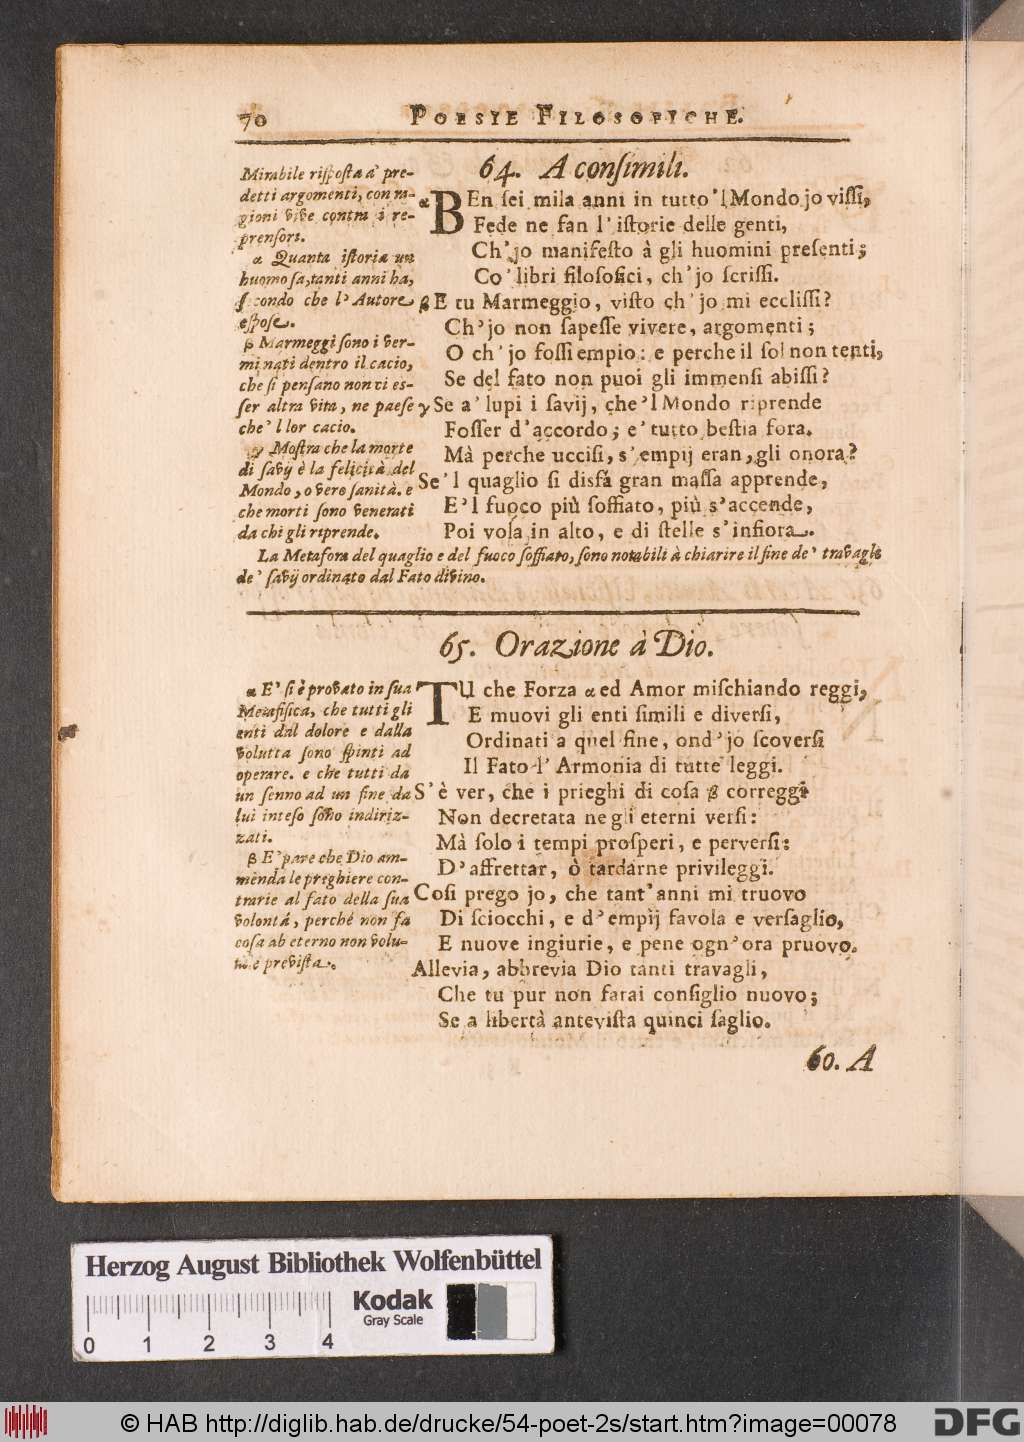 70
POESIE FILOSOFICHE.
64. A conſimili.
Mirabile riſpoſta a' pre-
detti argomenti, con ra-
gioni vive contra i re-
prenſori.
α Quanta iſtoria un
huomo ſa, tanti anni ha,
ſecondo che l' Autore
eſpoſe.
β Marmeggi ſono i ver-
mi nati dentro il cacio,
che ſi penſano non vi eſ-
ſer altra vita, ne paeſe
che 'l lor cacio.
γ Moſtra che la morte
di ſavij è la felicità del
Mondo, o vero ſanità. e
che morti ſono venerati
da chi gli riprende.
α BEn ſei mila anni in tutto 'l Mondo jo viſſi,
Fede ne fan l' iſtorie delle genti,
Ch' jo manifeſto à gli huomini preſenti;
Co' libri filoſofici, ch' jo ſcriſſi.
β E tu Marmeggio, viſto ch' jo mi eccliſſi?
Ch' jo non ſapeſſe vivere, argomenti;
O ch' jo foſſi empio: e perche il ſol non tenti,
Se del fato non puoi gli immenſi abiſſi?
γ Se a' lupi i ſavij, che 'l Mondo riprende
Foſſer d' accordo; e' tutto beſtia fora.
Mà perche ucciſi, s' empij eran, gli onora?
Se 'l quaglio ſi disfà gran maſſa apprende,
E 'l fuoco più ſoffiato, più s' accende,
Poi vola in alto, e di ſtelle s' infiora.
La Metafora del quaglio e del fuoco ſoffiato, ſono notabili à chiarire il fine de' travagli
de' ſavij ordinato dal Fato divino.
65. Orazione à Dio.
α E' ſi è provato in ſua
Metafiſica, che tutti gli
enti dal dolore e dalla
volutta ſono ſpinti ad
operare. e che tutti da
un ſenno ad un fine da
lui inteſo ſono indiriz-
zati.
β E' pare che Dio am-
menda le preghiere con-
trarie al fato della ſua
volontá, perché non fa
coſa ab eterno non volu-
ta e previſta.
TU che Forza α ed Amor miſchiando reggi,
E muovi gli enti ſimili e diverſi,
Ordinati a quel fine, ond' jo ſcoverſi
Il Fato l' Armonia di tutte leggi.
S' è ver, che i prieghi di coſa β correggi
Non decretata ne gli eterni verſi:
Mà ſolo i tempi proſperi, e perverſi:
D' affrettar, ò tardarne privileggi.
Coſi prego jo, che tant' anni mi truovo
Di ſciocchi, e d' empij favola e verſaglio,
E nuove ingiurie, e pene ogn' ora pruovo.
Allevia, abbrevia Dio tanti travagli,
Che tu pur non farai conſiglio nuovo;
Se a libertà anteviſta quinci ſaglio.
60. A
Herzog August Bibliothek Wolfenbüttel
Kodak
Gray Scale
0 1 2 3 4
© HAB http://diglib.hab.de/drucke/54-poet-2s/start.htm?image=00078
DFG